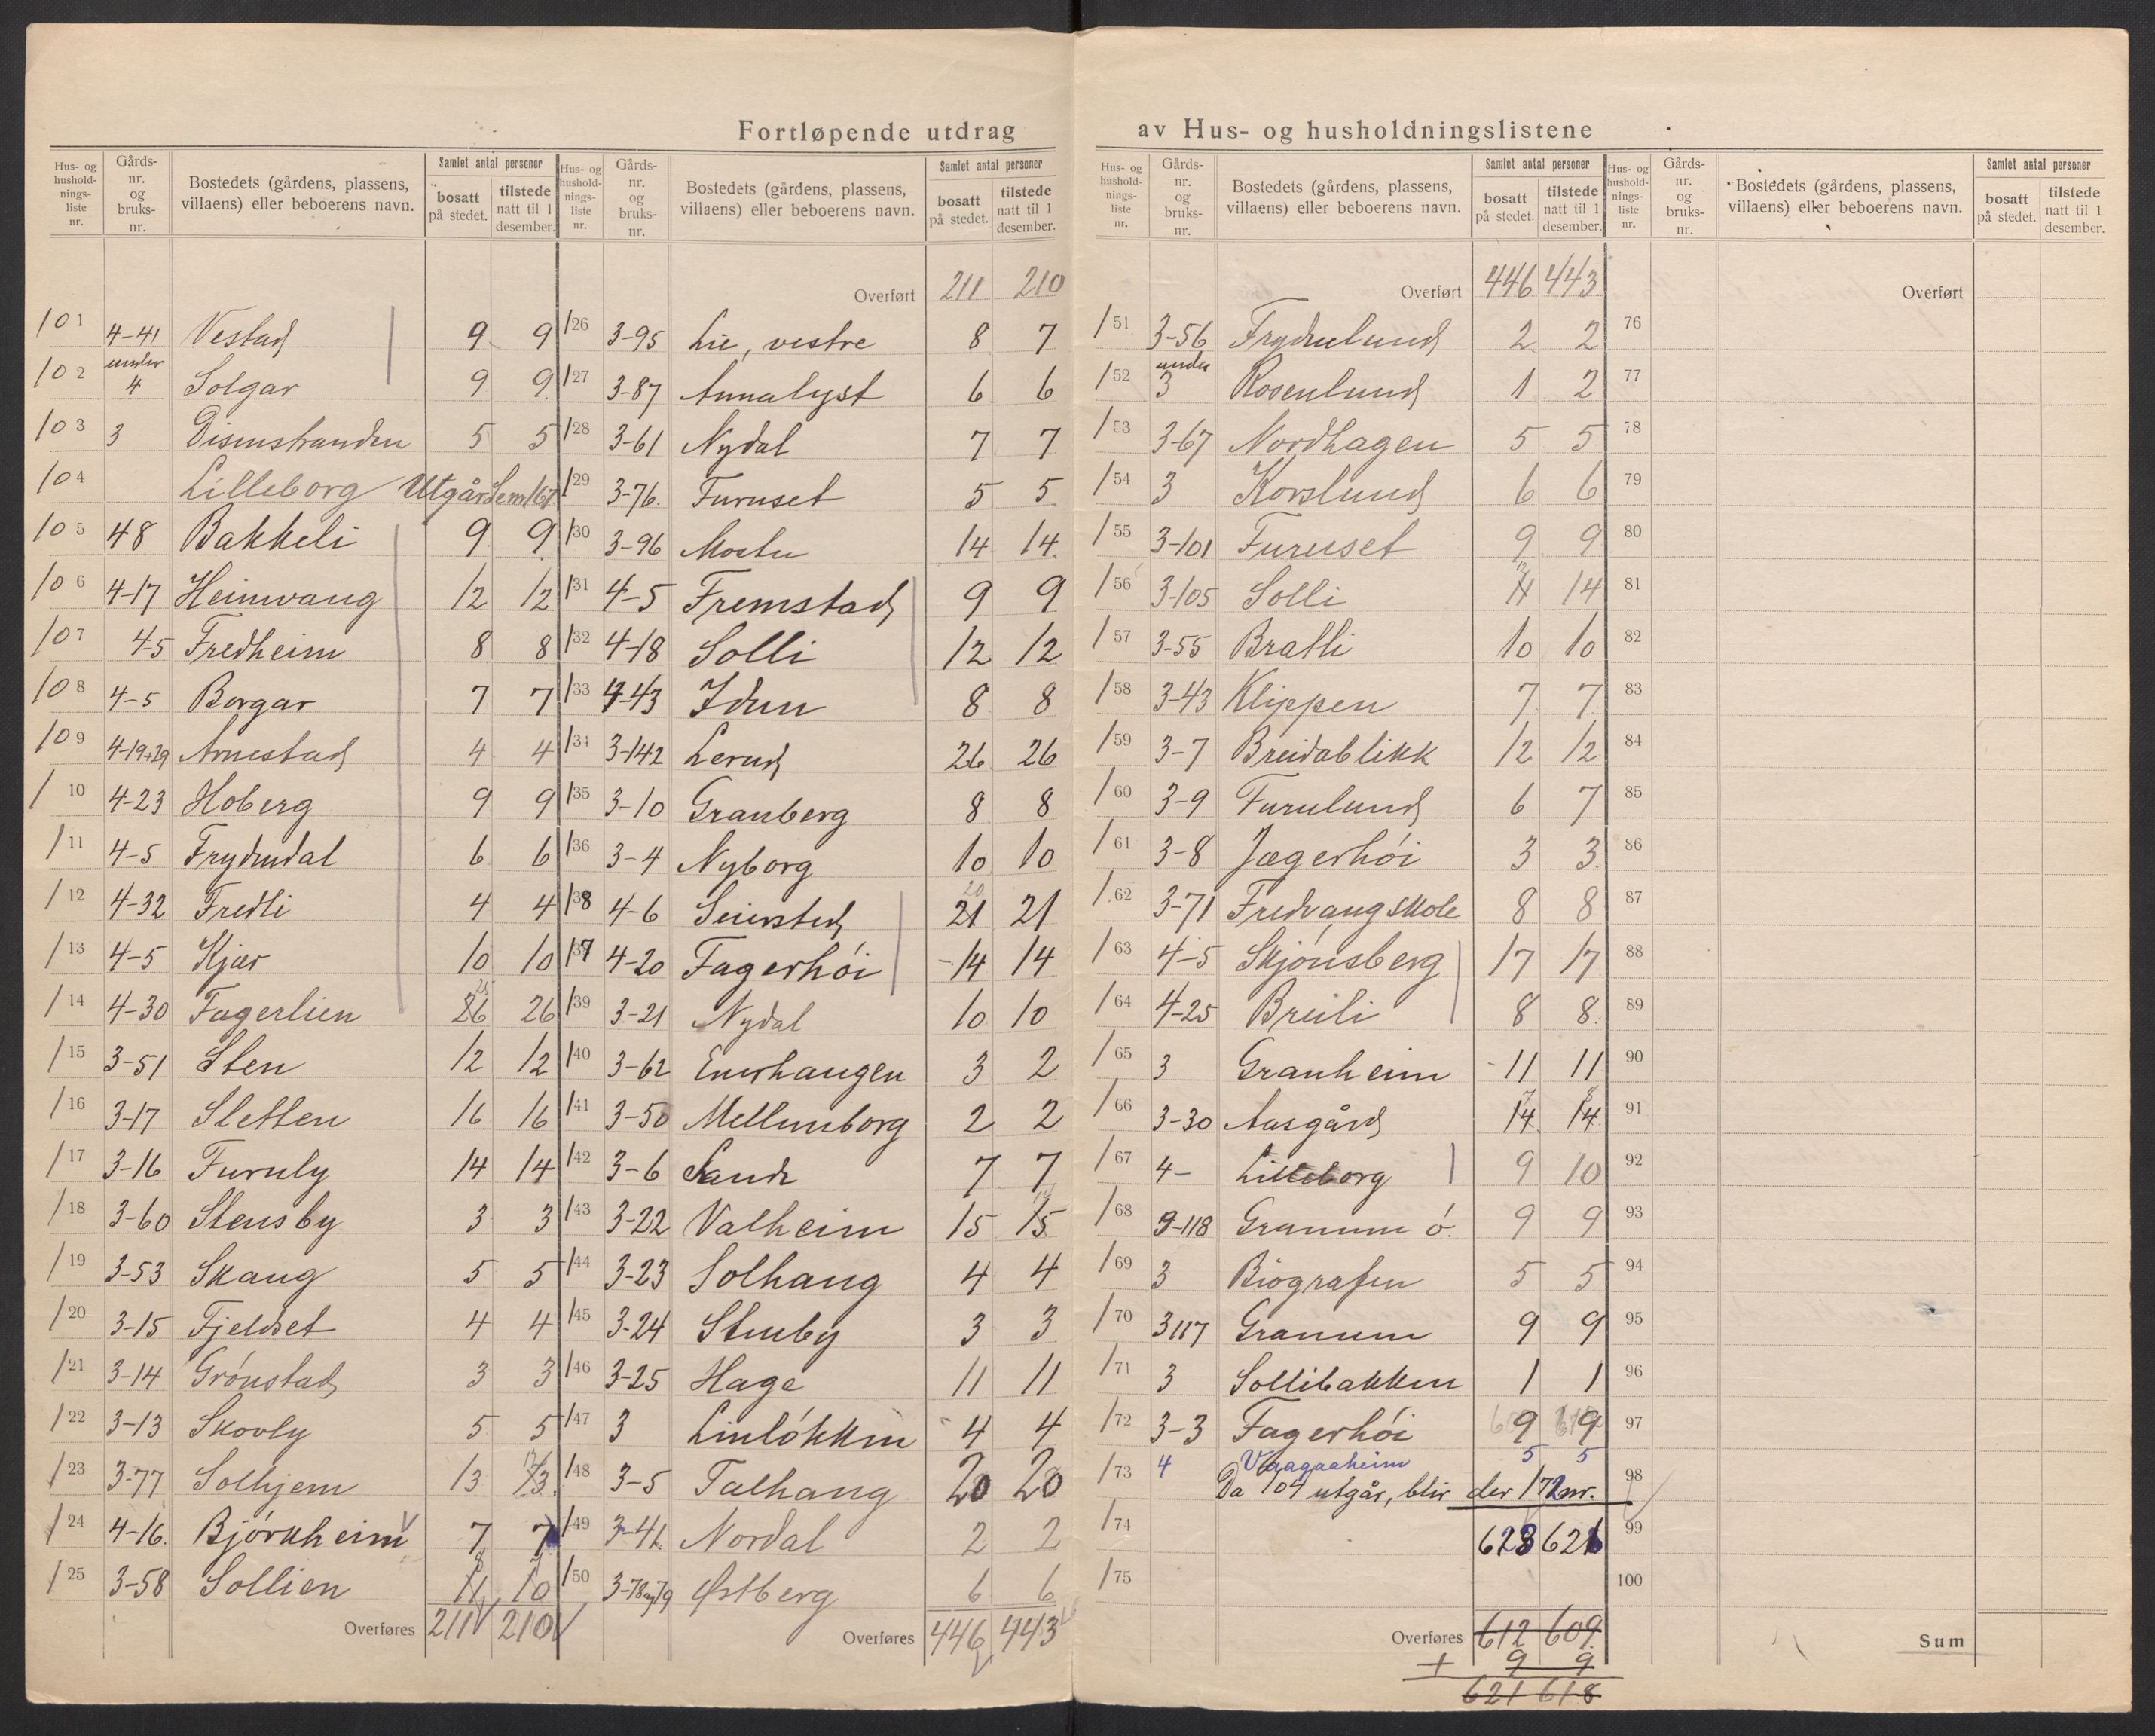 Fortløpende utdrag av Hus- og husholdningslistene
Hus- og husholdnings-liste nr. Gårds-nr. og bruks-nr. Bostedets (gårdens, plassens, villaens) eller beboerens navn. Samlet antal personer bosatt på stedet. tilstede natt til 1 desember.
101 4-41 Vestad 9 9
102 under 4 Solgar 9 9
103 3 Disenstranden 5 5
104 Lilleborg Utgår Sem 167
105 48 Bakkeli 9 9
106 4-17 Heimvang 12 12
107 4-5 Fredheim 8 8
108 4-5 Borgar 7 7
109 4-19+29 Arnestad 4 4
110 4-23 Hoberg 9 9
111 4-5 Frydendal 6 6
112 4-32 Fredli 4 4
113 4-5 Kjær 10 10
114 4-30 Fagerlien 26 25 26
115 3-51 Sten 12 12
116 3-17 Sletten 16 16
117 3-16 Furuly 14 14
118 3-60 Stensby 3 3
119 3-53 Skaug 5 5
120 3-15 Fjeldset 4 4
121 3-14 Grønstad 3 3
122 3-13 Skovly 5 5
123 3-77 Solhjem 13 13 12
124 4-16. Bjørkheim 7 7
125 3-58 Sollien 11 8 10 7
Overføres 211 210
Hus- og husholdnings-liste nr. Gårds-nr. og bruks-nr. Bostedets (gårdens, plassens, villaens) eller beboerens navn. Samlet antal personer bosatt på stedet. tilstede natt til 1 desember.
Overført 211 210
126 3-95 Lie, vestre 8 7
127 3-87 Annalyst 6 6
128 3-61 Nydal 7 7
129 3-76. Furuset 5 5
130 3-96 Mostu 14 14
131 4-5 Fremstad 9 9
132 4-18 Solli 12 12
133 4-43 Idun 8 8
134 3-142 Lerud 26 26
135 3-10 Granberg 8 8
136 3-4 Nyborg 10 10
138 4-6 Seierstad 21 20 21
137 4-20 Fagerhói 14 14
139 3-21 Nydal 10 10
140 3-62 Enerhaugen 3 2
141 3-50 Mellemborg 2 2
142 3-6 Sand 7 7
143 3-22 Valheim 15 15 14
144 3-23 Solhaug 4 4
145 3-24 Stenby 3 3
146 3-25 Hage 11 11
147 3 Linløkken 4 4
148 3-5 Talhaug 20 20
149 3-41 Nordal 2 2
150 3-78og79 Østberg 6 6
Overføres 446 443
Hus- og husholdnings-liste nr. Gårds-nr. og bruks-nr. Bostedets (gårdens, plassens, villaens) eller beboerens navn. Samlet antal personer bosatt på stedet. tilstede natt til 1 desember.
Overført 446 443
151 3-56 Frydenlund 2 2
152 under 3 Rosenlund 1 2
153 3-67 Nordhagen 5 5
154 3 Korslund 6 6
155 3-101 Furuset 9 9
156 3-105 Solli 14
157 3-55 Bratli 10 10
158 3-43 Klippen 7 7
159 3-7 Breidablikk 12 12
160 3-9 Furulund 6 7
161 3-8 Jægerhói 3 3
162 3-71 Fredvang skole 8 8
163 4-5 Skjónsberg 17 17
164 4-25 Breili 8 8
165 3 Granheim 11 11
166 3-30 Aasgård 14 7 14 8
167 4- Lilleborg 9 10
168 3-118 Granum ø. 9 9
169 3 Biografen 5 5
170 3117 Granum 9 9
171 3 Sollibakken 1 1
172 3-3 Fagerhói 9 9
173 4 5 5
Da 104 utgår, blir der 172 nr.
174 623 621
175
Overføres 612 609
+ 9 9
621 618
Hus- og husholdnings-liste nr. Gårds-nr. og bruks-nr. Bostedets (gårdens, plassens, villaens) eller beboerens navn. Samlet antal personer bosatt på stedet. tilstede natt til 1 desember.
Overført
76
77
78
79
80
81
82
83
84
85
86
87
88
89
90
91
92
93
94
95
96
97
98
99
100
Sum